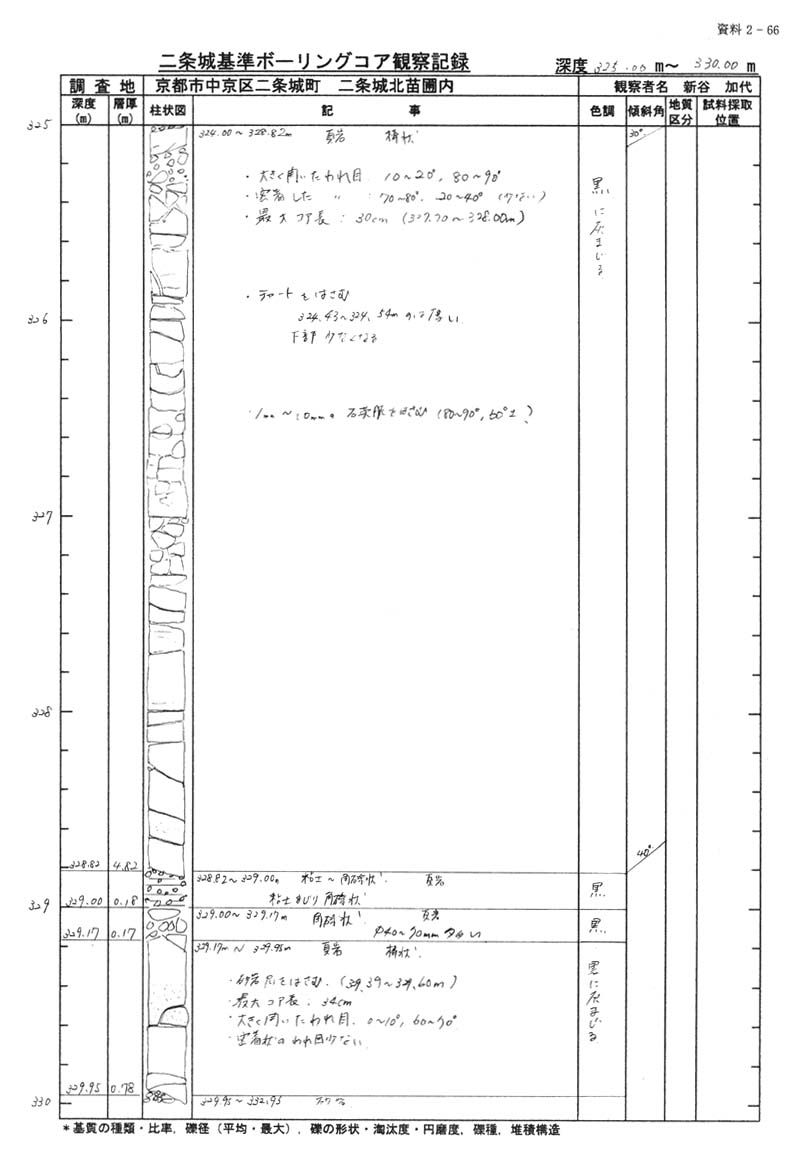 資料 2 - 66
二条城基準ボーリングコア観察記録
深度 325.00 m～ 330.00 m
調査地 京都市中京区二条城町 二条城北苗圃内 観察者名 新谷 加代
深度(m) 層厚(m) 柱状図 記事 色調 傾斜角 地質区分 試料採取位置
325
324.00～328.82m 頁岩 棒状 30°
・大きく開いたわれ目 10～20°, 80～90°
・密着した 〃 : 70～80°, 20～40° (少ない)
・最大コア長 : 30cm (327.70～328.00m)
黒に灰まじる
・チャートをはさむ
324.43～324.54m のは厚い
326
下部 少なくなる
・1mm～10mmの石英脈をはさむ (80～90°, 60°±)
327
328
40°
328.82 4.82
328.82～329.00m 粘土～角礫状 頁岩
黒
329 329.00 0.18
粘土まじり角礫状
329.00～329.17m 角礫状 頁岩
黒
329.17 0.17
φ40～70mm 多い
329.17m～329.95m 頁岩 棒状
・砂岩層をはさむ. (329.39～329.60m)
・最大コア長 : 34cm
・大きく開いたわれ目. 0～10°, 60～70°
・密着状のわれ目少ない
黒に灰まじる
329.95 0.78
330
329.95～332.93
＊基質の種類・比率, 礫径（平均・最大）, 礫の形状・淘汰度・円磨度, 礫種, 堆積構造